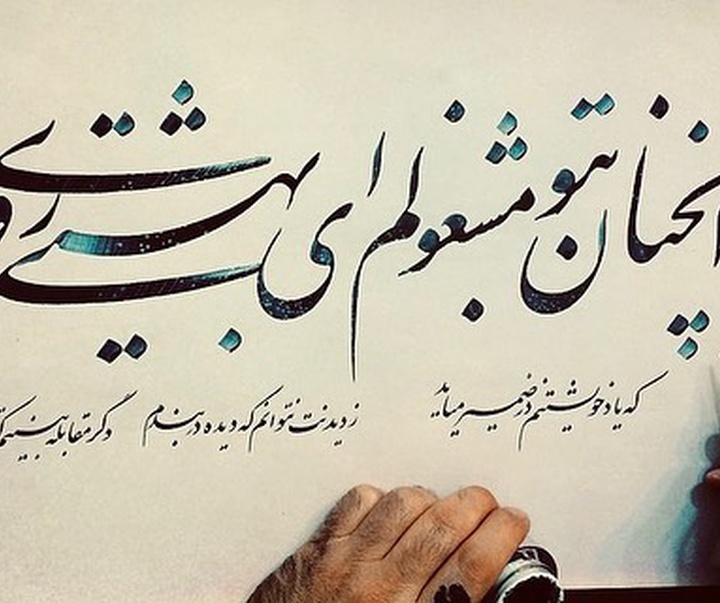 انچنان بتو مشغولم ای بهشتی روی
که یاد خویشتنم در ضمیر میاید ز دیدنت نتوانم که دیده در بندم وگر مقابله بینم